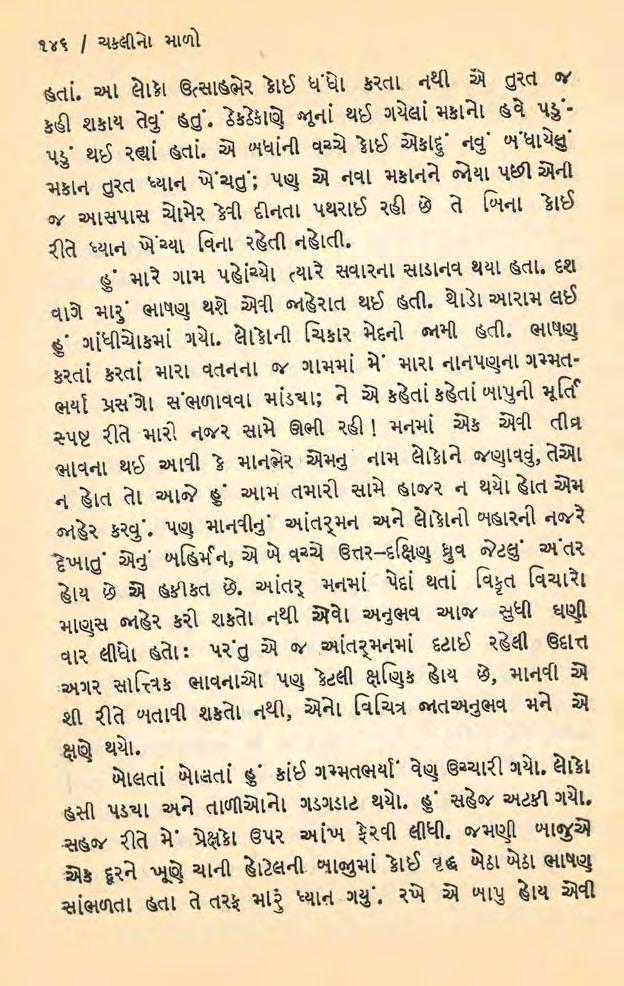 ૧૪૬ / ચકલીનો માળો
હતાં. આ લોકો ઉત્સાહભેર કોઈ ધંધો કરતા નથી એ તુરત જ
કહી શકાય તેવું હતું. ઠેકઠેકાણે જૂનાં થઈ ગયેલાં મકાનો હવે પડું-
પડું થઈ રહ્યાં હતાં. એ બધાંની વચ્ચે કોઈ એકાદું નવું બંધાયેલું
મકાન તુરત ધ્યાન ખેંચતું; પણ એ નવા મકાનને જોયા પછી એની
જ આસપાસ ચોમેર કેવી દીનતા પથરાઈ રહી છે તે બિના કોઈ
રીતે ધ્યાન ખેંચ્યા વિના રહેતી નહોતી.
હું મારે ગામ પહોંચ્યો ત્યારે સવારના સાડાનવ થયા હતા. દશ
વાગે મારું ભાષણ થશે એવી જાહેરાત થઈ હતી. થોડો આરામ લઈ
હું ગાંધીચોકમાં ગયો. લોકોની ચિકાર મેદની જામી હતી. ભાષણ
કરતાં કરતાં મારા વતનના જ ગામમાં મેં મારા નાનપણના ગમ્મત-
ભર્યા પ્રસંગો સંભળાવવા માંડ્યા; ને એ કહેતાં કહેતાં બાપુની મૂર્તિ
સ્પષ્ટ રીતે મારી નજર સામે ઊભી રહી! મનમાં એક એવી તીવ્ર
ભાવના થઈ આવી કે માનભેર એમનુ નામ લોકોને જણાવવું, તેઓ
ન હોત તો આજે હું આમ તમારી સામે હાજર ન થયો હોત એમ
જાહેર કરવું. પણ માનવીનું આંતર્મન અને લોકોની બહારની નજરે
દેખાતું એનું બહિર્મન, એ બે વચ્ચે ઉત્તર–દક્ષિણ ધ્રુવ જેટલું અંતર
હોય છે એ હકીકત છે. આંતર્ મનમાં પેદાં થતાં વિકૃત વિચારો
માણસ જાહેર કરી શકતો નથી એવો અનુભવ આજ સુધી ઘણી
વાર લીધો હતો: પરંતુ એ જ આંતર્મનમાં દટાઈ રહેલી ઉદાત્ત
અગર સાત્ત્વિક ભાવનાઓ પણ કેટલી ક્ષણિક હોય છે, માનવી એ
શી રીતે બતાવી શકતો નથી, એનો વિચિત્ર જાતઅનુભવ મને એ
ક્ષણે થયો.
બોલતાં બોલતાં હું કાંઈ ગમ્મતભર્યાં વેણ ઉચ્ચારી ગયો. લોકો
હસી પડ્યા અને તાળીઓનો ગડગડાટ થયો. હું સહેજ અટકી ગયો.
સહજ રીતે મેં પ્રેક્ષકો ઉપર આંખ ફેરવી લીધી. જમણી બાજુએ
એક દૂરને ખૂણે ચાની હોટેલની બાજુમાં કોઈ વૃદ્ધ બેઠા બેઠા ભાષણ
સાંભળતા હતા તે તરફ મારું ધ્યાન ગયું. રખે એ બાપુ હોય એવી